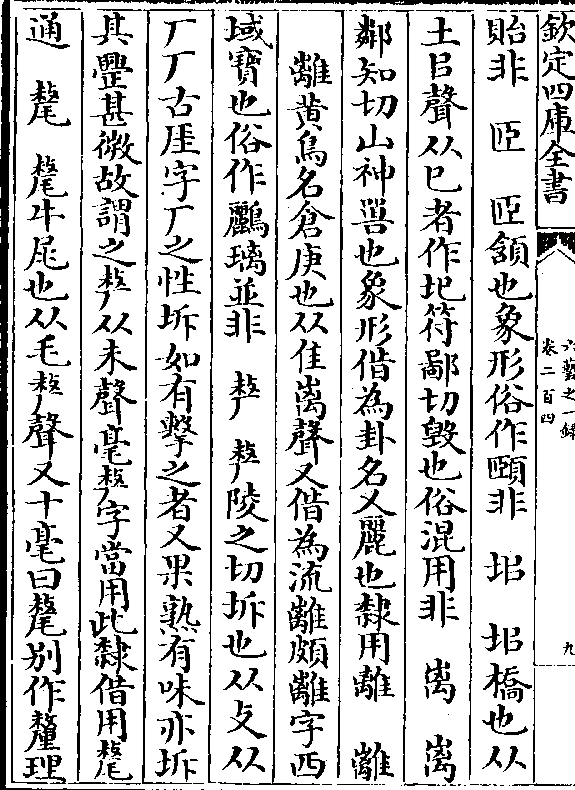 欽定四庫全書
六藝之一録
卷二百四
九
貽非　𦣞　𦣞頷也象形俗作頤非　圯　圯橋也从
土㠯聲从已者作圮符鄙切毀也俗混用非　离　离
鄰知切山神獸也象形借為卦名又麗也隸用離　離
離黄鳥名倉庚也从隹离聲又借為流離頗離字西
域寶也俗作鸝璃並非　𠩺　𠩺陵之切坼也从攴从
厂厂古厓字厂之性坼如有擊之者又果熟有味亦坼
其釁甚微故謂之𠩺从未聲毫𠩺字當用此隸借用氂
通　氂　氂牛尾也从毛𠩺聲又十毫曰氂别作釐理